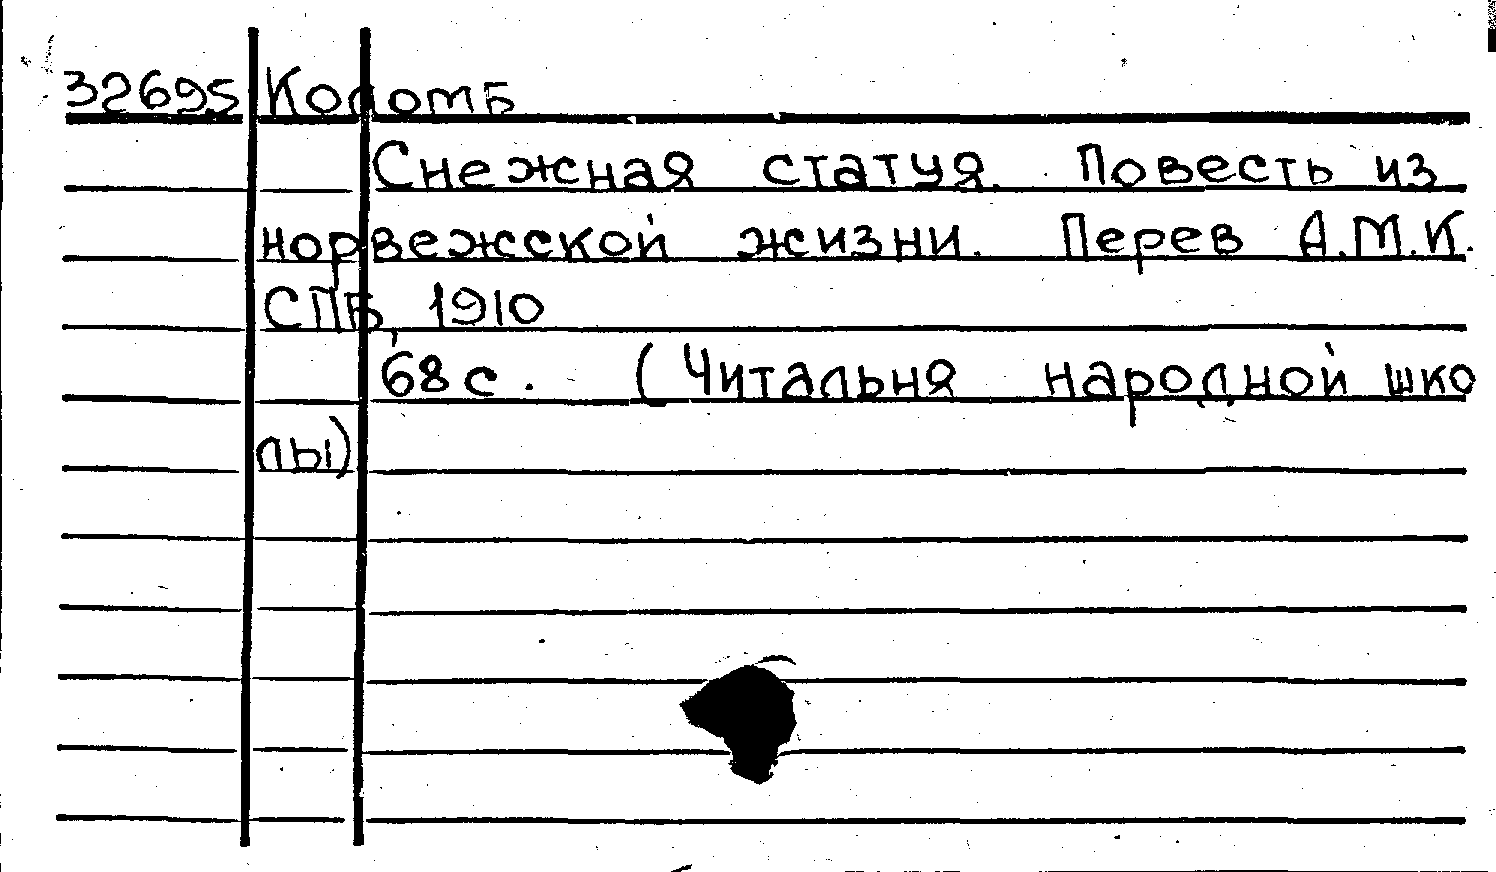 32695 Коломб
Снежная статуя. Повесть из
норвежской жизни. Перев А.М.К.
СПБ, 1910
68 с. (Читальня народной шко
лы)